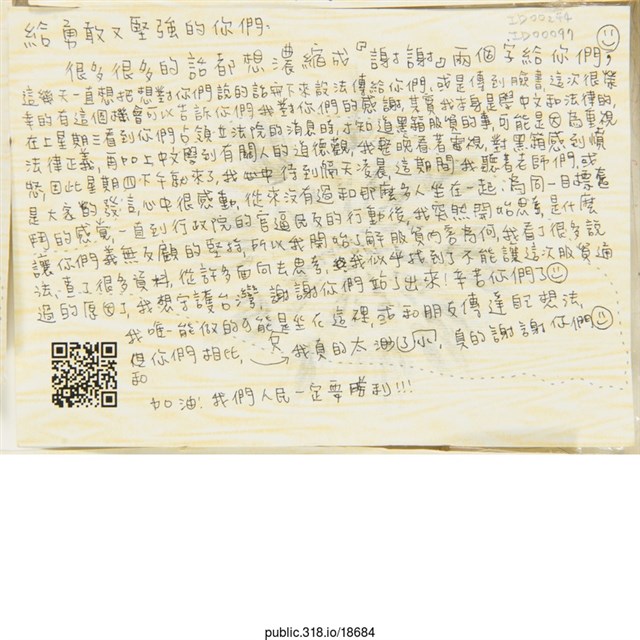 ID00274
ID00097
給勇敢又堅強的你們:
很多很多的話都想濃縮成『謝謝』兩個字給你們,
這幾天一直想把想對你們說的話寫下來設法傳給你們,或是傳到臉書,這次很榮
幸的有這個機會可以告訴你們我對你們的感謝,其實我本身是學中文和法律的,
在上星期三看到你們占領立法院的消息時,才知道黑箱服貿的事,可能是因為重視
法律正義,再加上中文學到有關人的道德觀,我整晚看著電視,對黑箱感到憤
怒,因此星期四下午就來了,我心中待到隔天凌晨,這期間我聽著老師們,或
是大家的發言,心中很感動,從來沒有過和那麼多人坐在一起,為同一目標奮
鬥的感覺,一直到行政院的官逼民反的行動後,我突然開始思考,是什麼
讓你們義無反顧的堅持,所以我開始了解服貿內容為何,我看了很多說
法,查了很多資料,從許多面向去思考,我似乎找到了不能讓這次服貿通
過的原因了,我想守護台灣,謝謝你們站了出來!辛苦你們了
我唯一能做的只能是坐在這裡,或和朋友傳達自己想法,
但和你們相比,我真的太渺小了,真的謝謝你們
加油!我們人民一定要勝利!!!
public.318.io/18684